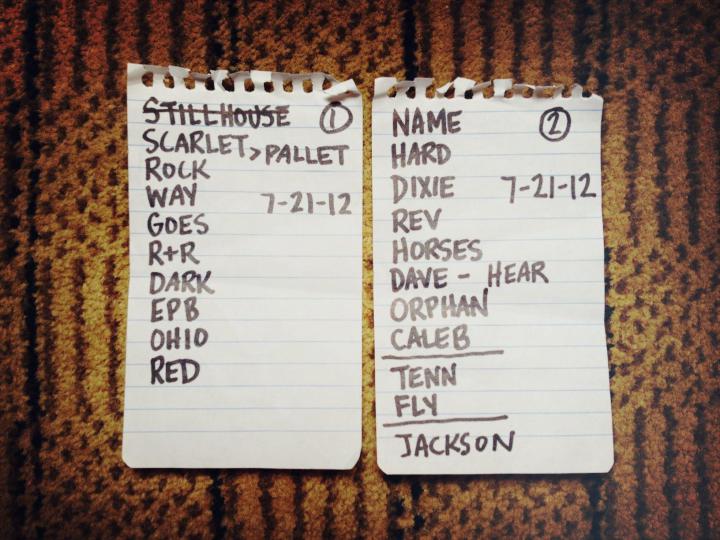 STILLHOUSE ①
SCARLET > PALLET
ROCK
WAY 7-21-12
GOES
R+R
DARK
EPB
OHIO
RED
NAME ②
HARD
DIXIE 7-21-12
REV
HORSES
DAVE - HEAR
ORPHAN
CALEB
TENN
FLY
JACKSON